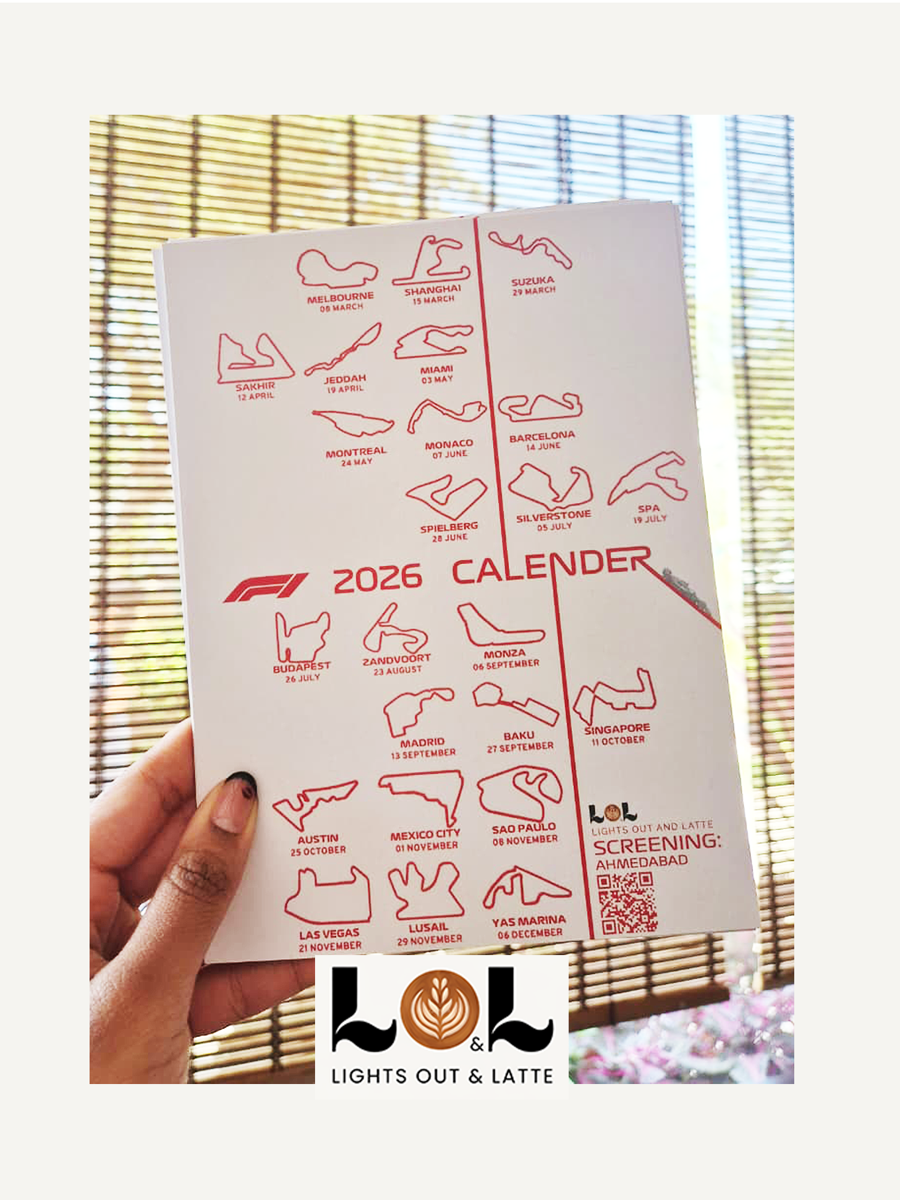 MELBOURNE
08 MARCH
SHANGHAI
15 MARCH
SUZUKA
29 MARCH
SAKHIR
12 APRIL
JEDDAH
19 APRIL
MIAMI
03 MAY
MONTREAL
24 MAY
MONACO
07 JUNE
BARCELONA
14 JUNE
SPIELBERG
28 JUNE
SILVERSTONE
05 JULY
SPA
19 JULY
F1 2026 CALENDER
BUDAPEST
26 JULY
ZANDVOORT
23 AUGUST
MONZA
06 SEPTEMBER
MADRID
13 SEPTEMBER
BAKU
27 SEPTEMBER
SINGAPORE
11 OCTOBER
AUSTIN
25 OCTOBER
MEXICO CITY
01 NOVEMBER
SAO PAULO
08 NOVEMBER
LAS VEGAS
21 NOVEMBER
LUSAIL
29 NOVEMBER
YAS MARINA
06 DECEMBER
LOL
LIGHTS OUT AND LATTE
SCREENING:
AHMEDABAD
LO&L
LIGHTS OUT & LATTE